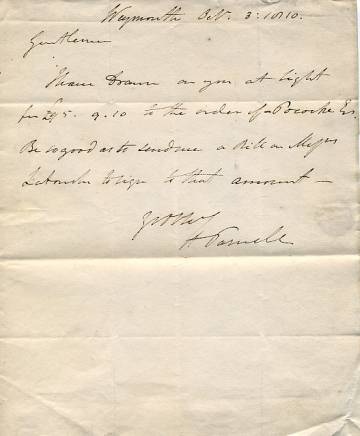 Weymouth Oct. 3. 1810.
Gentlemen
I have Drawn on you at Sight
for £95. 9. 10 to the order of Pococke Esq
Be so good as to send me a Bill on Messrs
to sign to that amount —
Yr ob St
H Parnell